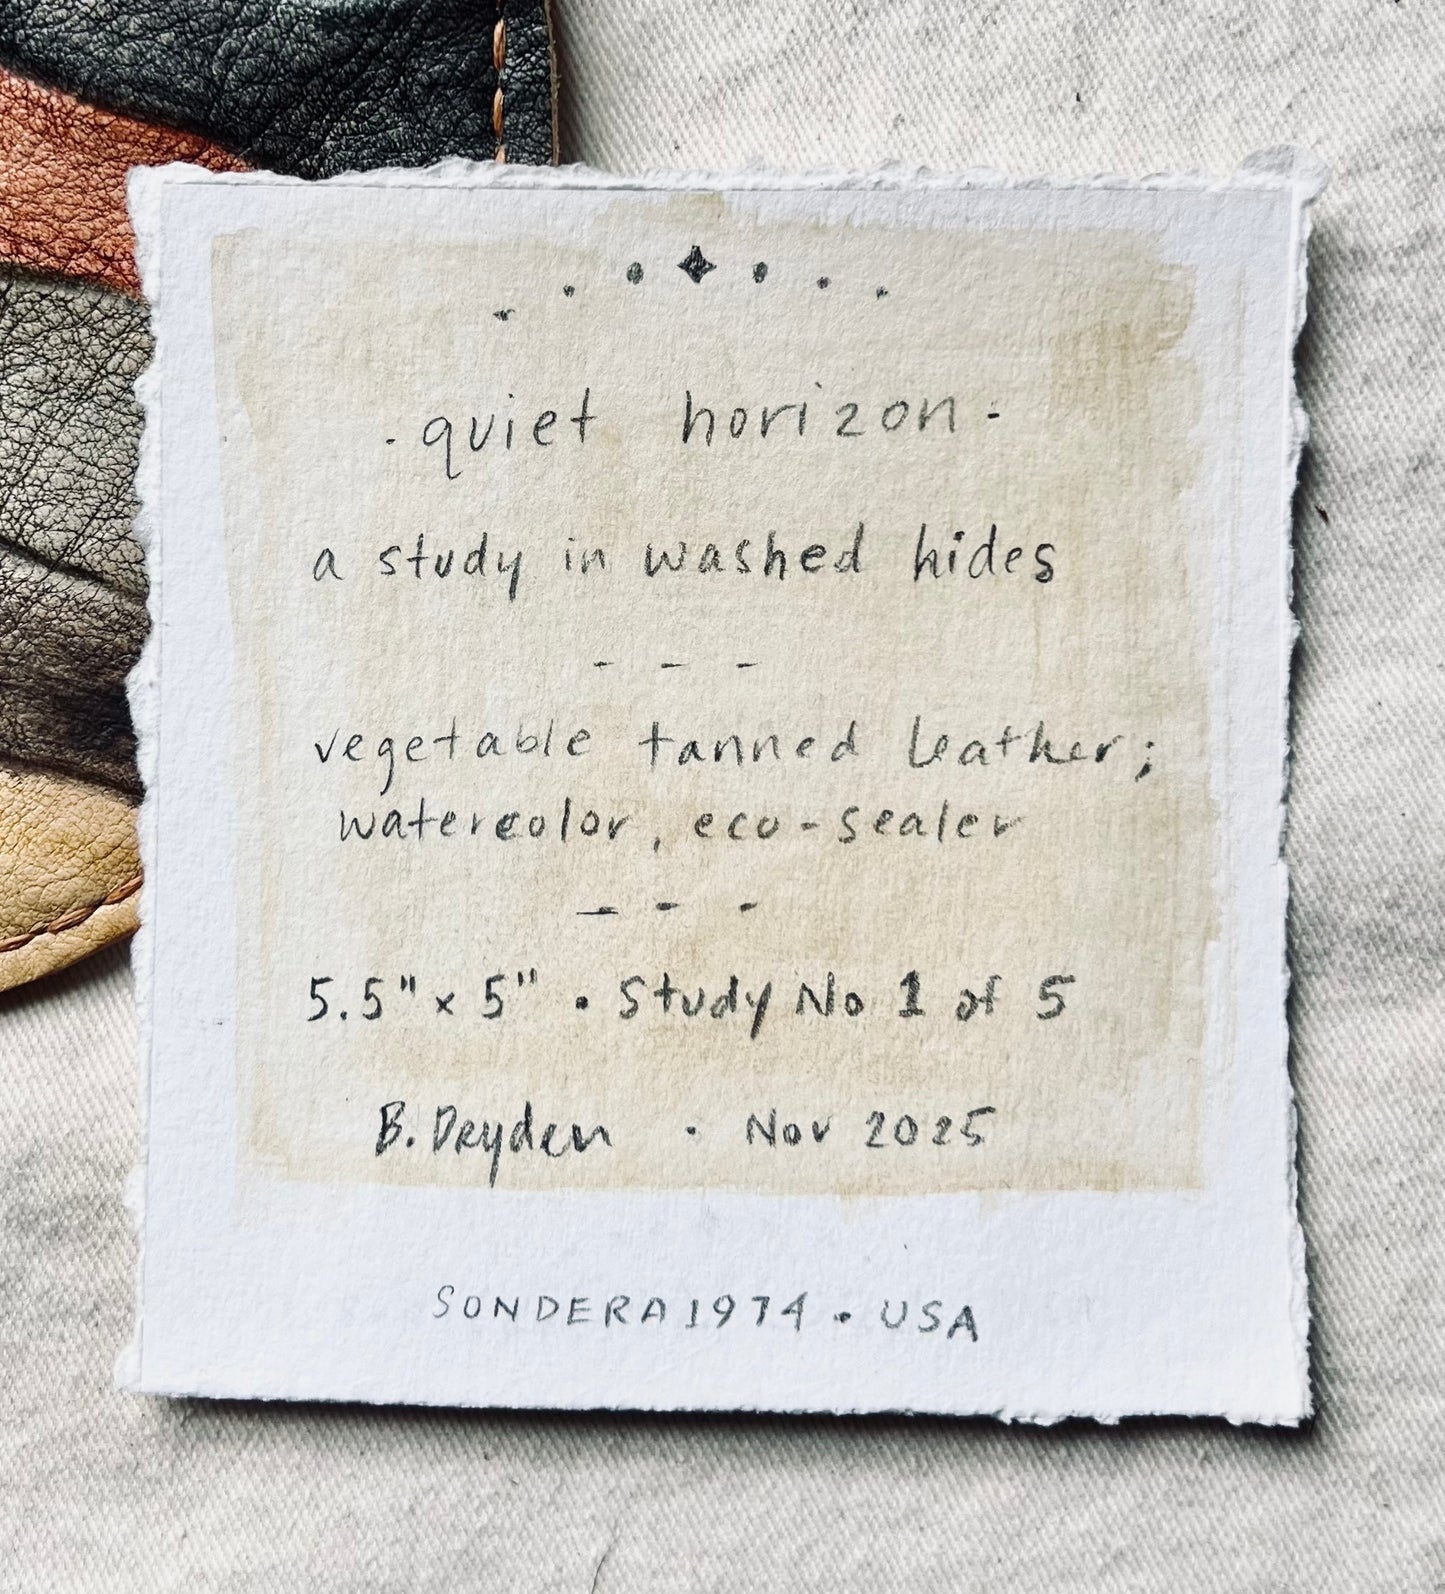 · quiet horizon ·
a study in washed hides
- - -
vegetable tanned leather;
watercolor, eco-sealer
- - -
5.5" x 5" • Study No 1 of 5
B. Dryden • Nov 2025
SONDERA1974 • USA